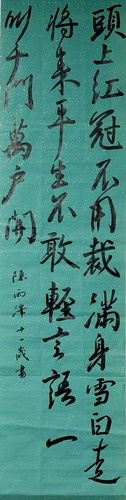 頭上紅冠不用裁滿身雪白走
將来平生不敢輕言語一
叫千門萬户開
陳雨澤十一歲書